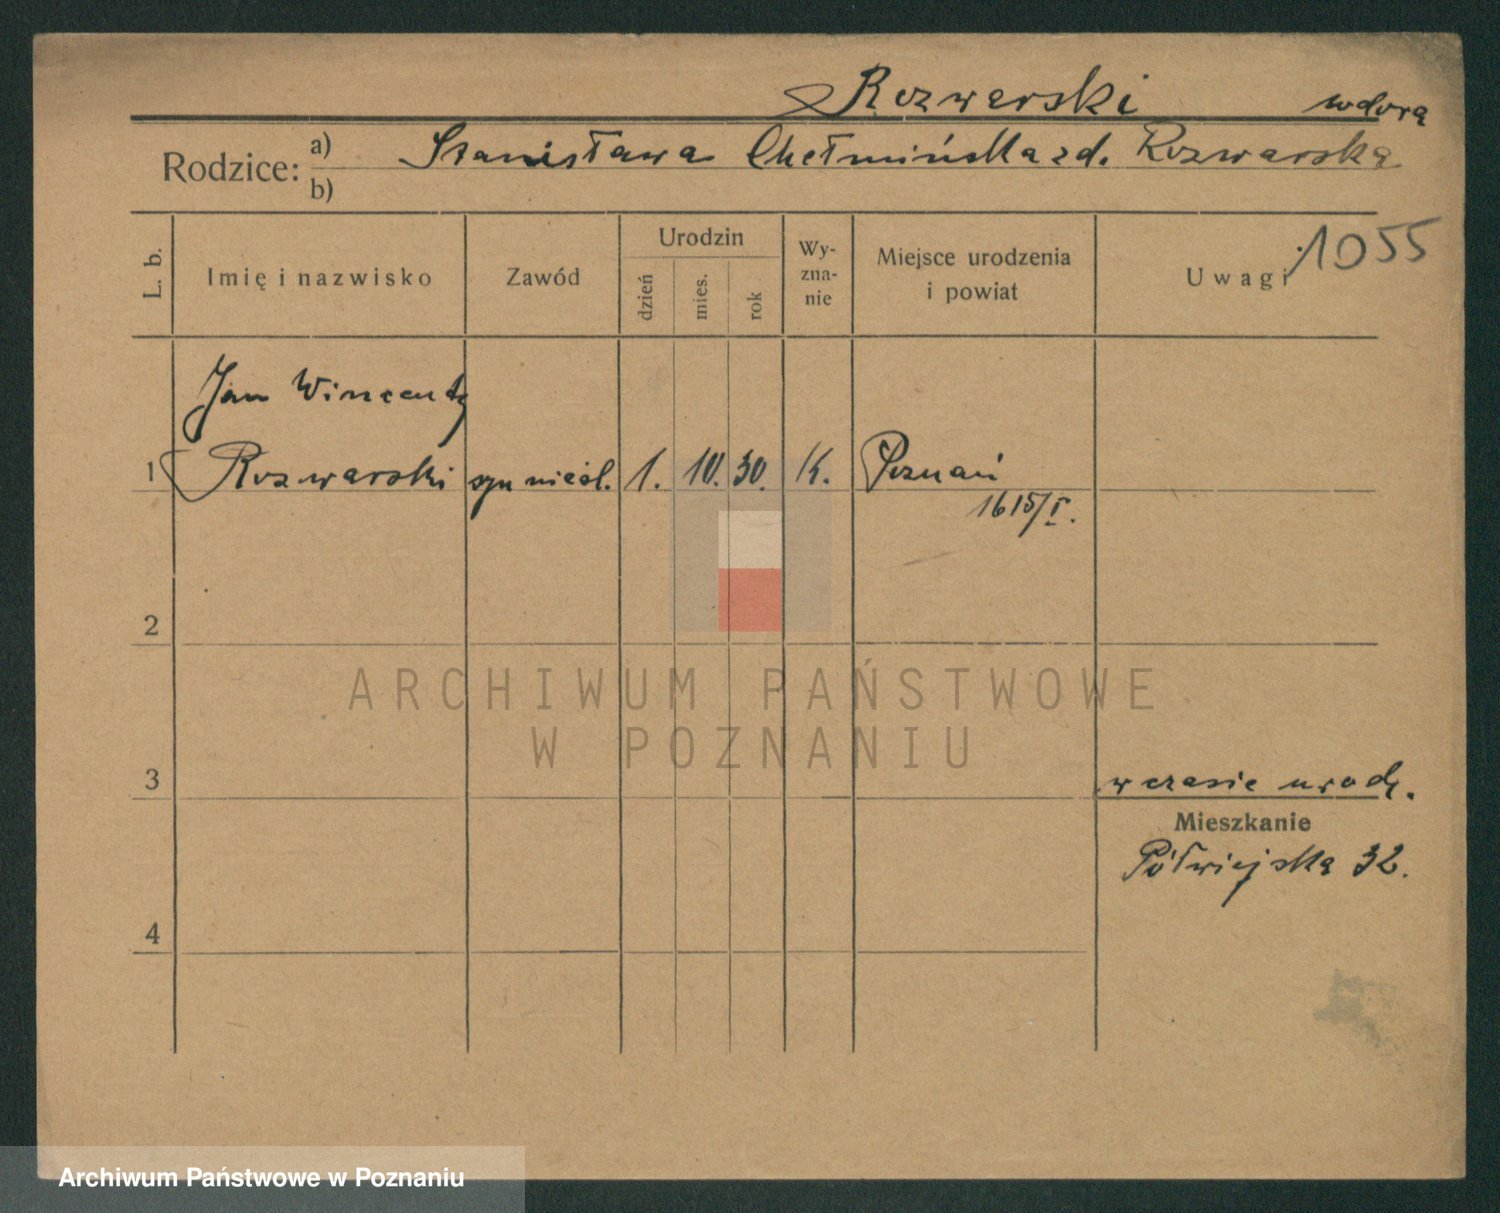 Rozwarski wdową
Rodzice: a) Stanisława Chełmińska zd. Rozwarska
b)
L. b. Imię i nazwisko Zawód Urodzin dzień mies. rok Wy-zna-nie Miejsce urodzenia i powiat Uwagi 1055
Jan Wincenty
1 Rozwarski syn nieśl. 1. 10. 30. K. Poznań
1615/I.
2
ARCHIWUM PAŃSTWOWE
W POZNANIU
3 w czasie urodz.
Mieszkanie
Półwiejska 32.
4
Archiwum Państwowe w Poznaniu